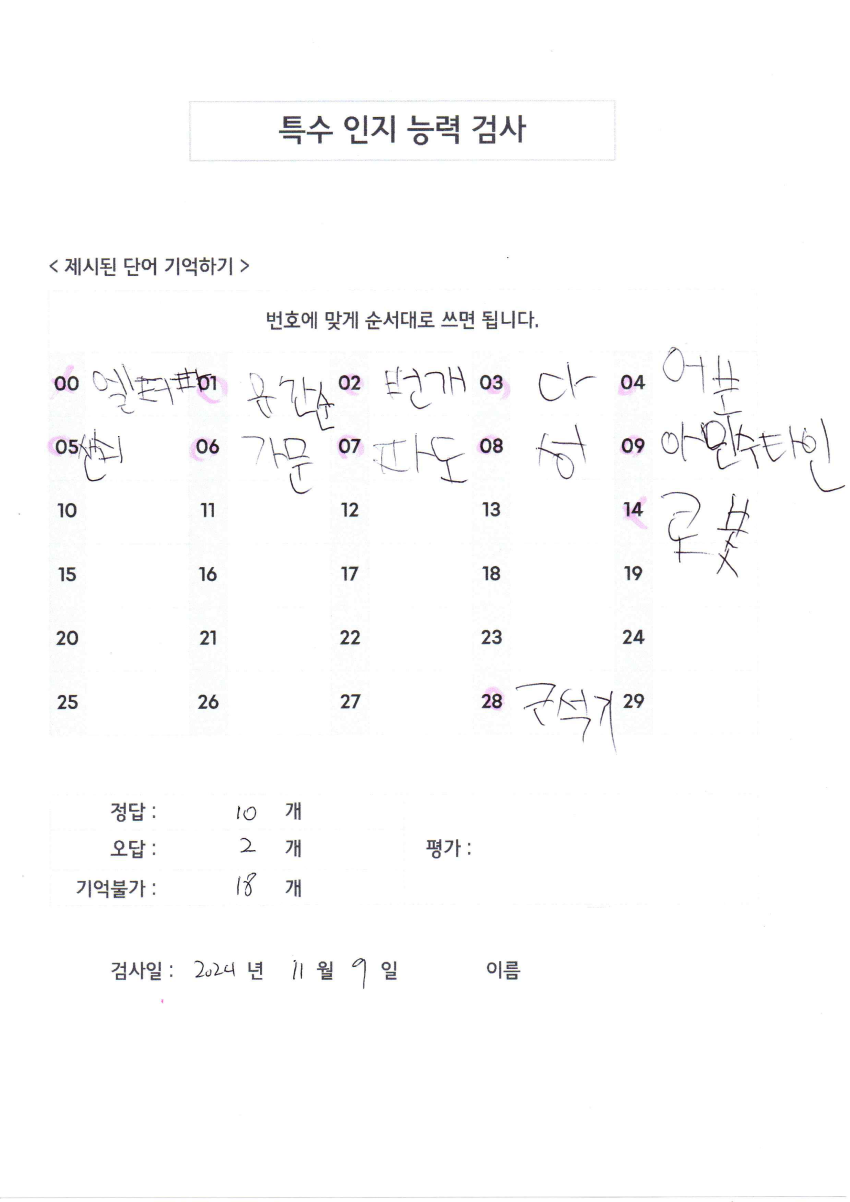 특수 인지 능력 검사
< 제시된 단어 기억하기 >
번호에 맞게 순서대로 쓰면 됩니다.
00 01 02 번개 03 다 04 어부
05 06 가문 07 파도 08 09
10 11 12 13 14 로봇
15 16 17 18 19
20 21 22 23 24
25 26 27 28 군석기 29
정답 : 10 개
오답 : 2 개 평가 :
기억불가 : 18 개
검사일 : 2024 년 11 월 9 일 이름